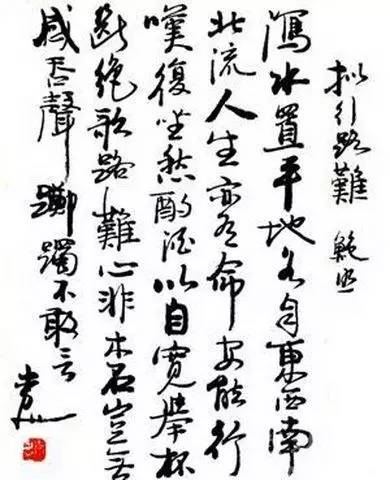 拟行路難 鮑照
瀉水置平地各自東西南
北流人生亦有命安能行
嘆復坐愁酌酒以自寬舉杯
斷絕歌路難心非木石豈無
感吞聲躑躅不敢言